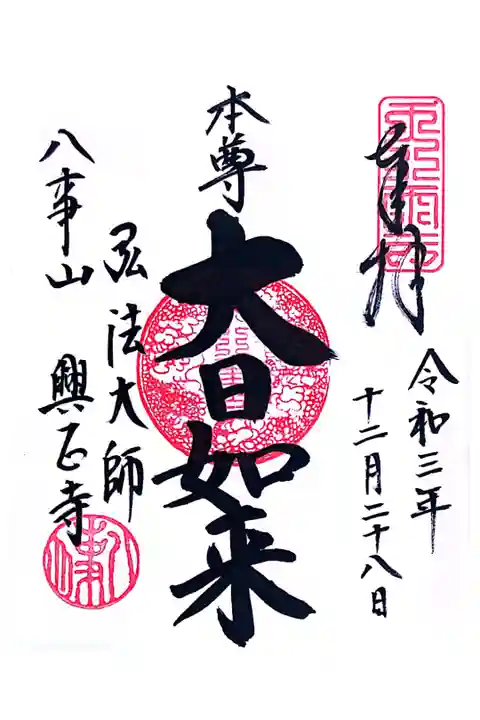 奉拝
令和三年
十二月二十八日
本尊
大日如来
弘法大師
八事山 興正寺